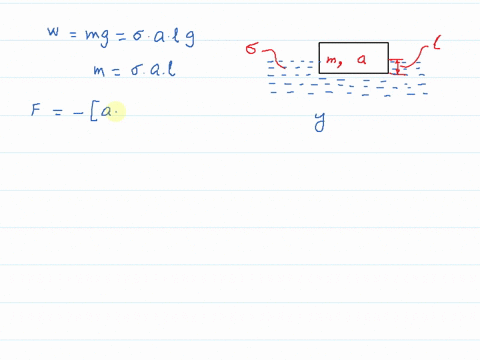 W = mg = σ·a·l g
m = σ·a·l
F = -[a·
σ
m, a
l
y